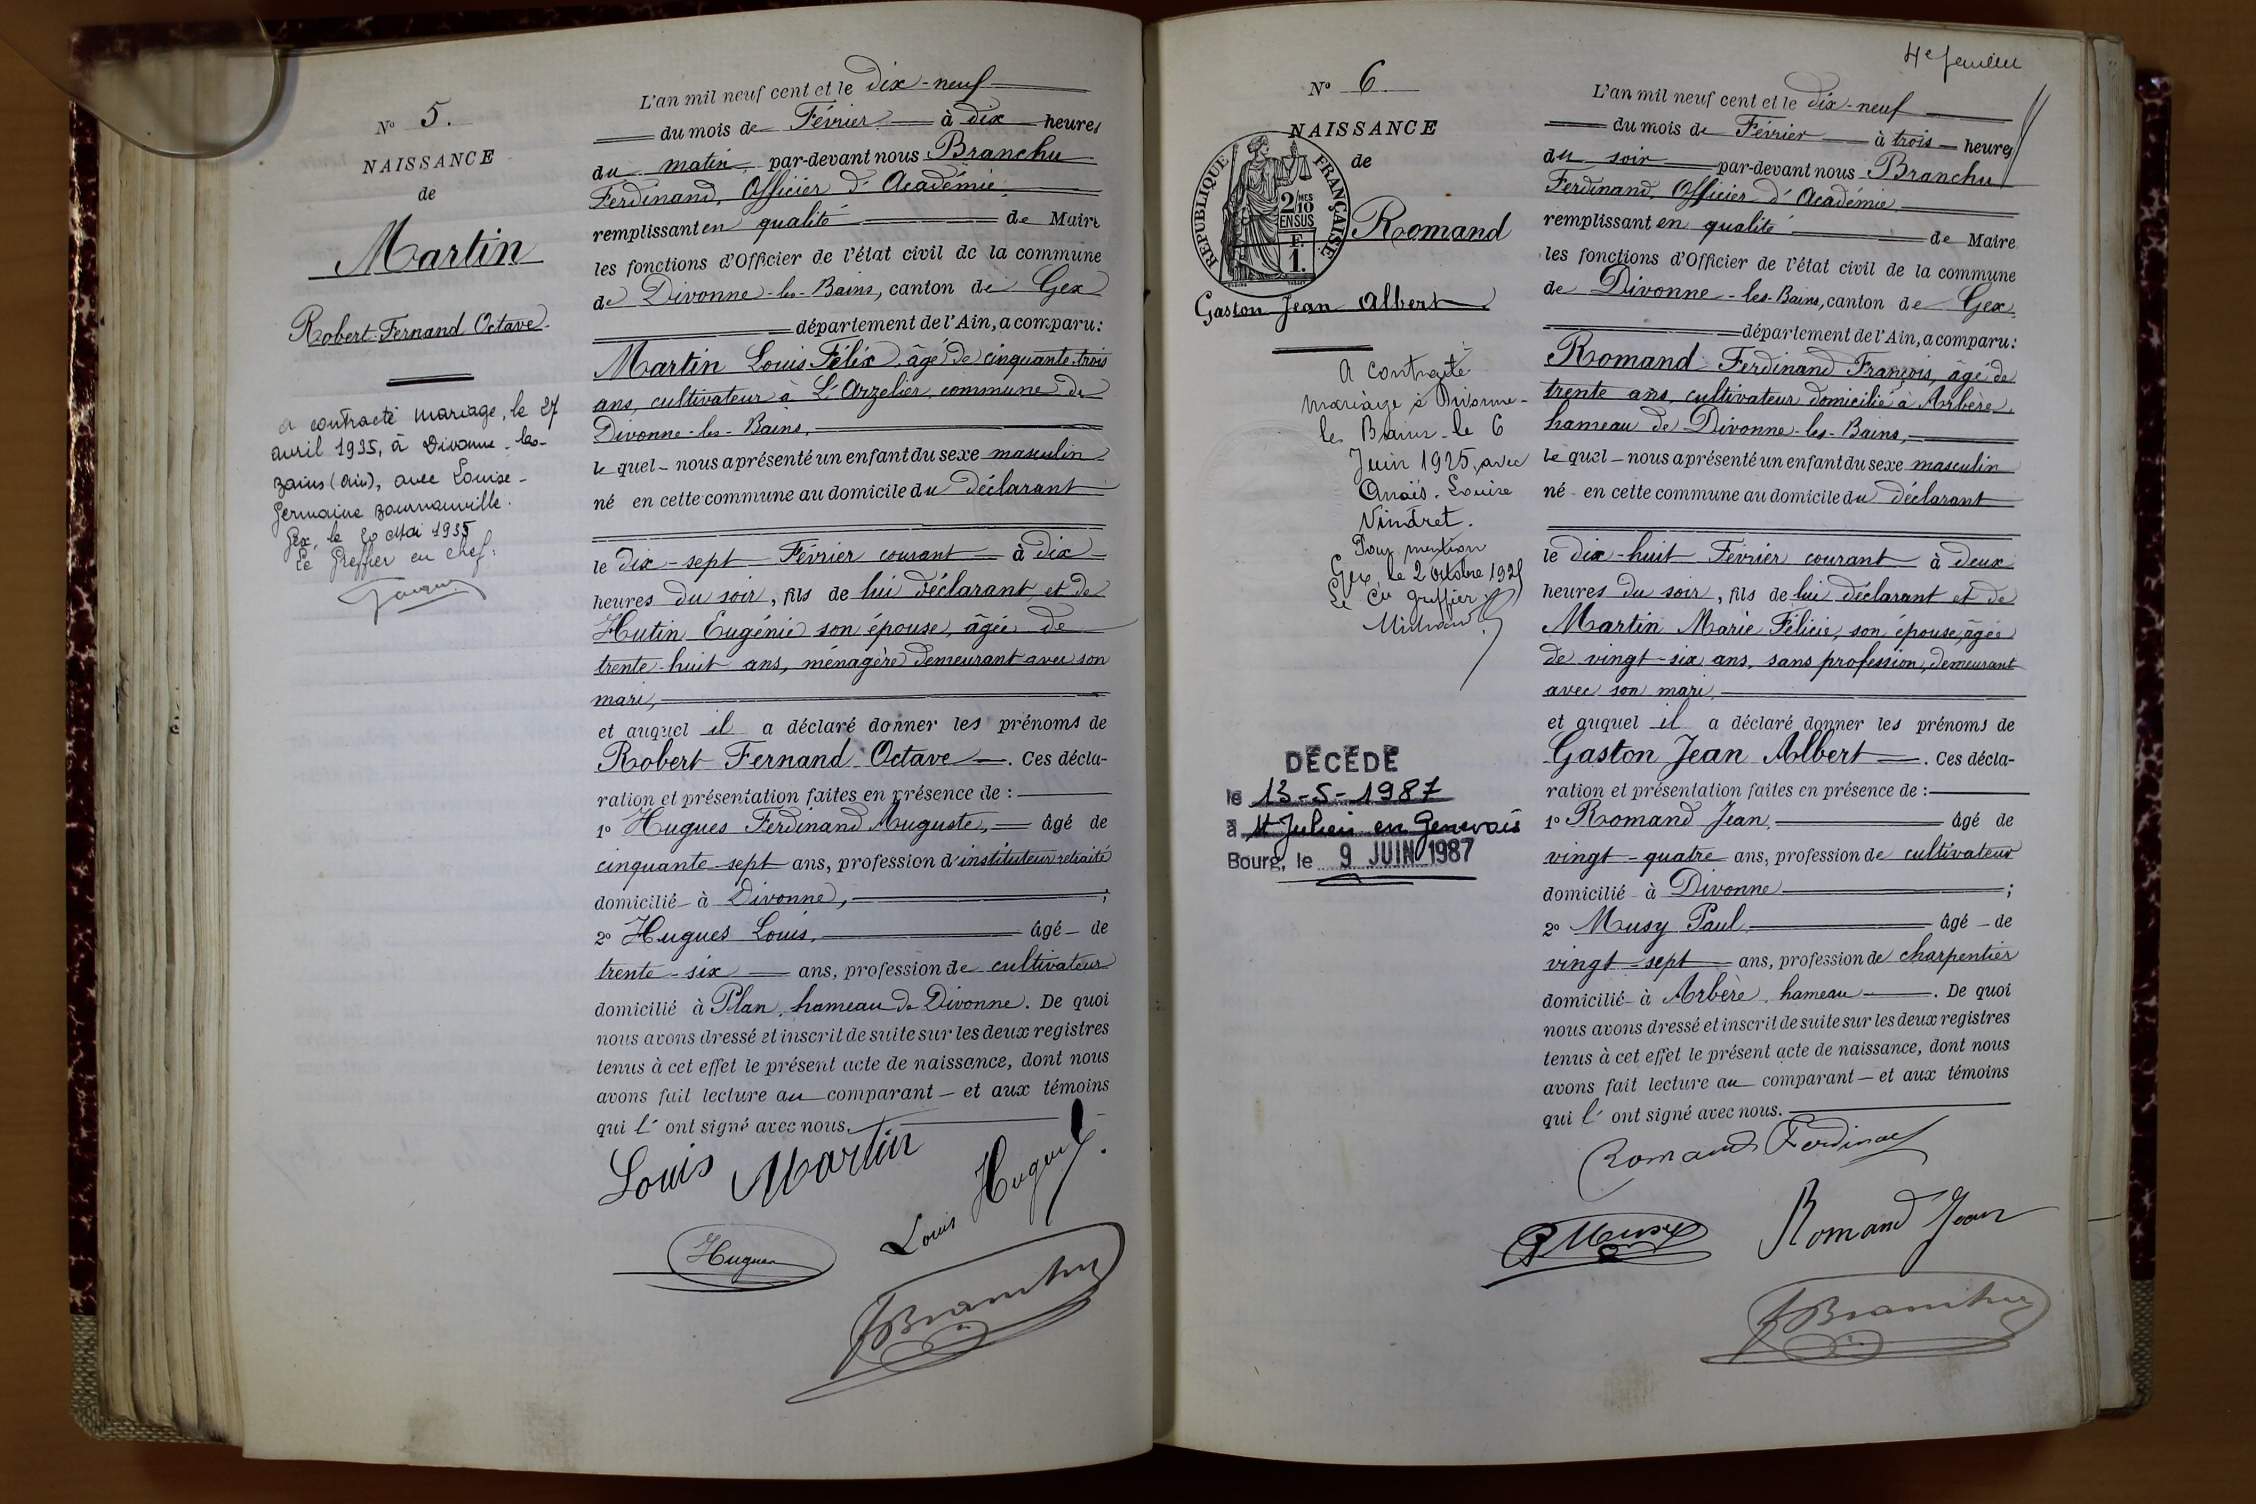 N° 5.
NAISSANCE
de
Martin
Robert Fernand Octave.
a contracté mariage, le 27
avril 1935, à Divonne-les-
Bains (Ain), avec Louise-
Germaine
Gex, le 20 Mai 1935
Le Greffier en chef:
L'an mil neuf cent et le dix-neuf
du mois de Février à dix heures
du matin, par-devant nous Branchu
Ferdinand, Officier d'Académie,
remplissant en qualité de Maire
les fonctions d'Officier de l'état civil de la commune
de Divonne-les-Bains, canton de Gex
département de l'Ain, a comparu:
Martin Louis Félix âgé de cinquante-trois
ans, cultivateur à L'Arzelier, commune de
Divonne-les-Bains,
le quel nous a présenté un enfant du sexe masculin
né en cette commune au domicile du déclarant
le dix-sept Février courant à dix
heures du soir, fils de lui déclarant et de
Hutin Eugénie son épouse, âgée de
trente-huit ans, ménagère demeurant avec son
mari,
et auquel il a déclaré donner les prénoms de
Robert Fernand Octave. Ces décla-
ration et présentation faites en présence de :
1° Hugues Ferdinand Auguste, âgé de
cinquante-sept ans, profession d'instituteur retraité
domicilié à Divonne, ;
2° Hugues Louis, âgé de
trente-six ans, profession de cultivateur
domicilié à Plan, hameau de Divonne. De quoi
nous avons dressé et inscrit de suite sur les deux registres
tenus à cet effet le présent acte de naissance, dont nous
avons fait lecture au comparant et aux témoins
qui l'ont signé avec nous.
Louis Martin
Louis Hugues
Hugues
FBranchu
4e feuillet
N° 6.
NAISSANCE
de
REPUBLIQUE FRANÇAISE
2/10MES
EN SUS
F.
1.
Romand
Gaston Jean Albert
A contracté
mariage à Divonne-
les Bains le 6
Juin 1925, avec
Anaïs Louise
Vindret.
Pour mention
Gex, le 2 Octobre 1925
Le Cis greffier
DÉCÉDÉ
le 13-5-1987
à St Julien en Genevois
Bourg, le 9 JUIN 1987
L'an mil neuf cent et le dix-neuf
du mois de Février à trois heures
du soir par-devant nous Branchu
Ferdinand, Officier d'Académie,
remplissant en qualité de Maire
les fonctions d'Officier de l'état civil de la commune
de Divonne-les-Bains, canton de Gex.
département de l'Ain, a comparu:
Romand Ferdinand François, âgé de
trente ans, cultivateur domicilié à Arbère,
hameau de Divonne-les-Bains,
le quel nous a présenté un enfant du sexe masculin
né en cette commune au domicile du déclarant
le dix-huit Février courant à deux
heures du soir, fils de lui déclarant et de
Martin Marie Félicie, son épouse, âgée
de vingt-six ans, sans profession, demeurant
avec son mari,
et auquel il a déclaré donner les prénoms de
Gaston Jean Albert. Ces décla-
ration et présentation faites en présence de :
1° Romand Jean, âgé de
vingt-quatre ans, profession de cultivateur
domicilié à Divonne ;
2° Musy Paul âgé de
vingt-sept ans, profession de charpentier
domicilié à Arbère, hameau. De quoi
nous avons dressé et inscrit de suite sur les deux registres
tenus à cet effet le présent acte de naissance, dont nous
avons fait lecture au comparant et aux témoins
qui l'ont signé avec nous.
Romand Ferdinand
P Musy
Romand Jean
FBranchu